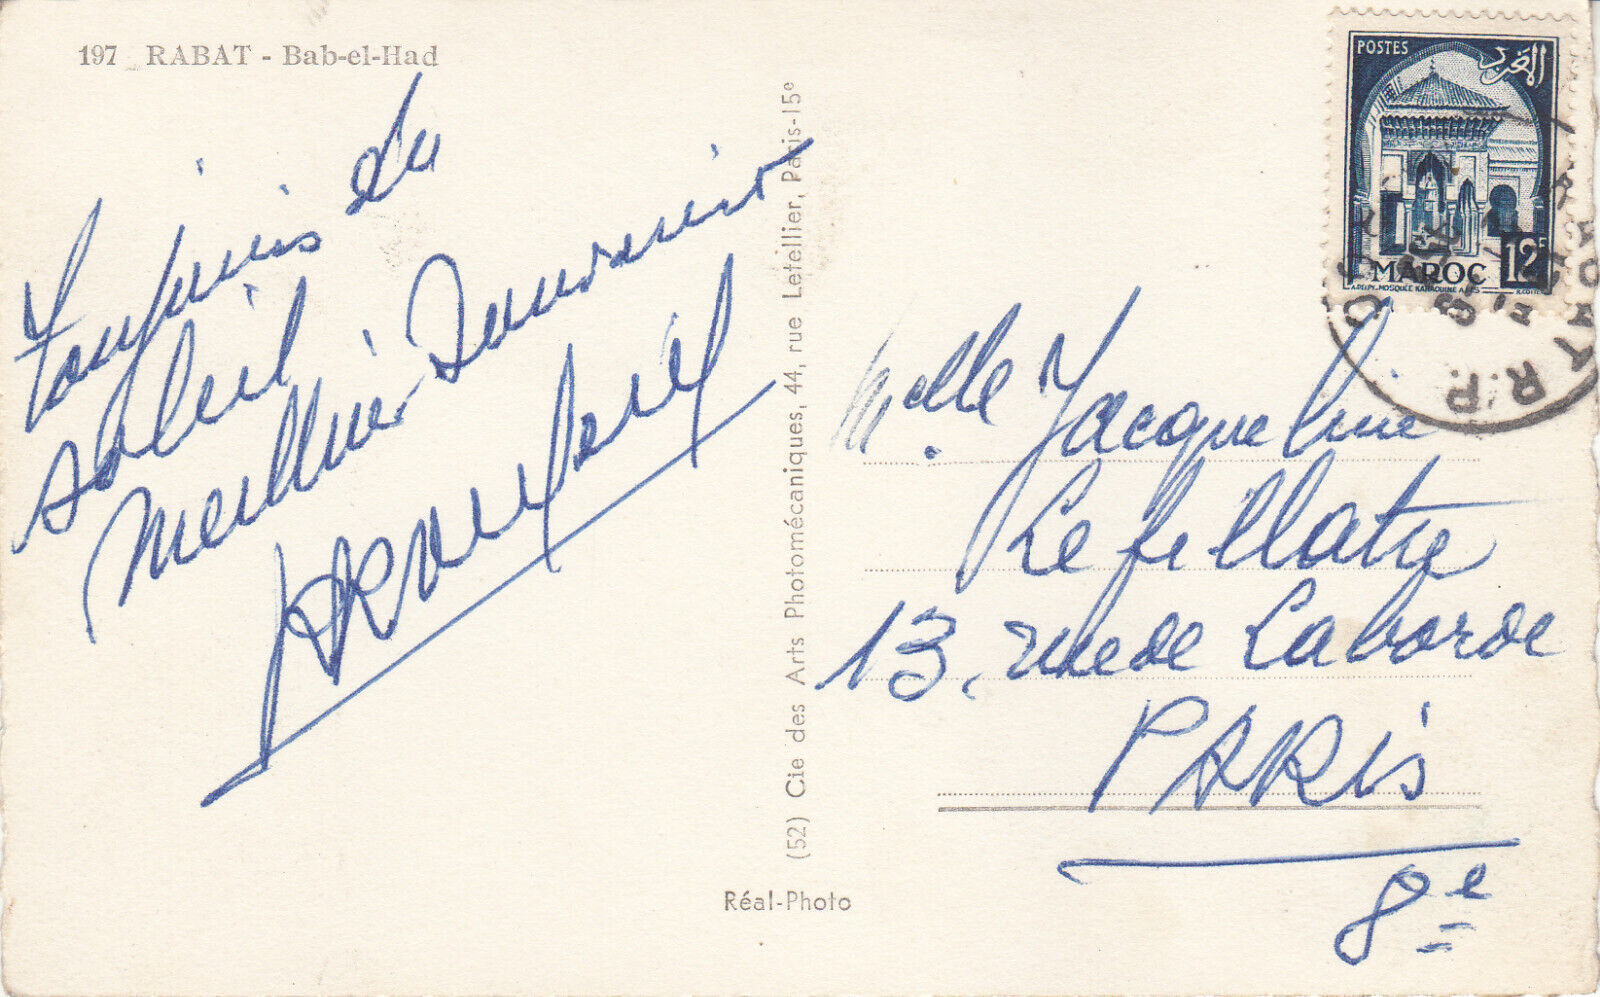 197 RABAT - Bab-el-Had
Toujours du
soleil
Meilleur Souvenir
(52) Cie des Arts Photomécaniques, 44, rue Letellier, Paris-15e
Réal-Photo
POSTES
المغرب
12F
MAROC
A.DELPY_MOSQUÉE KARAOUINE A FÈS
Melle Jacqueline
Lefillatre
13, rue de Laborde
PARIS
8e
RABAT R.P.